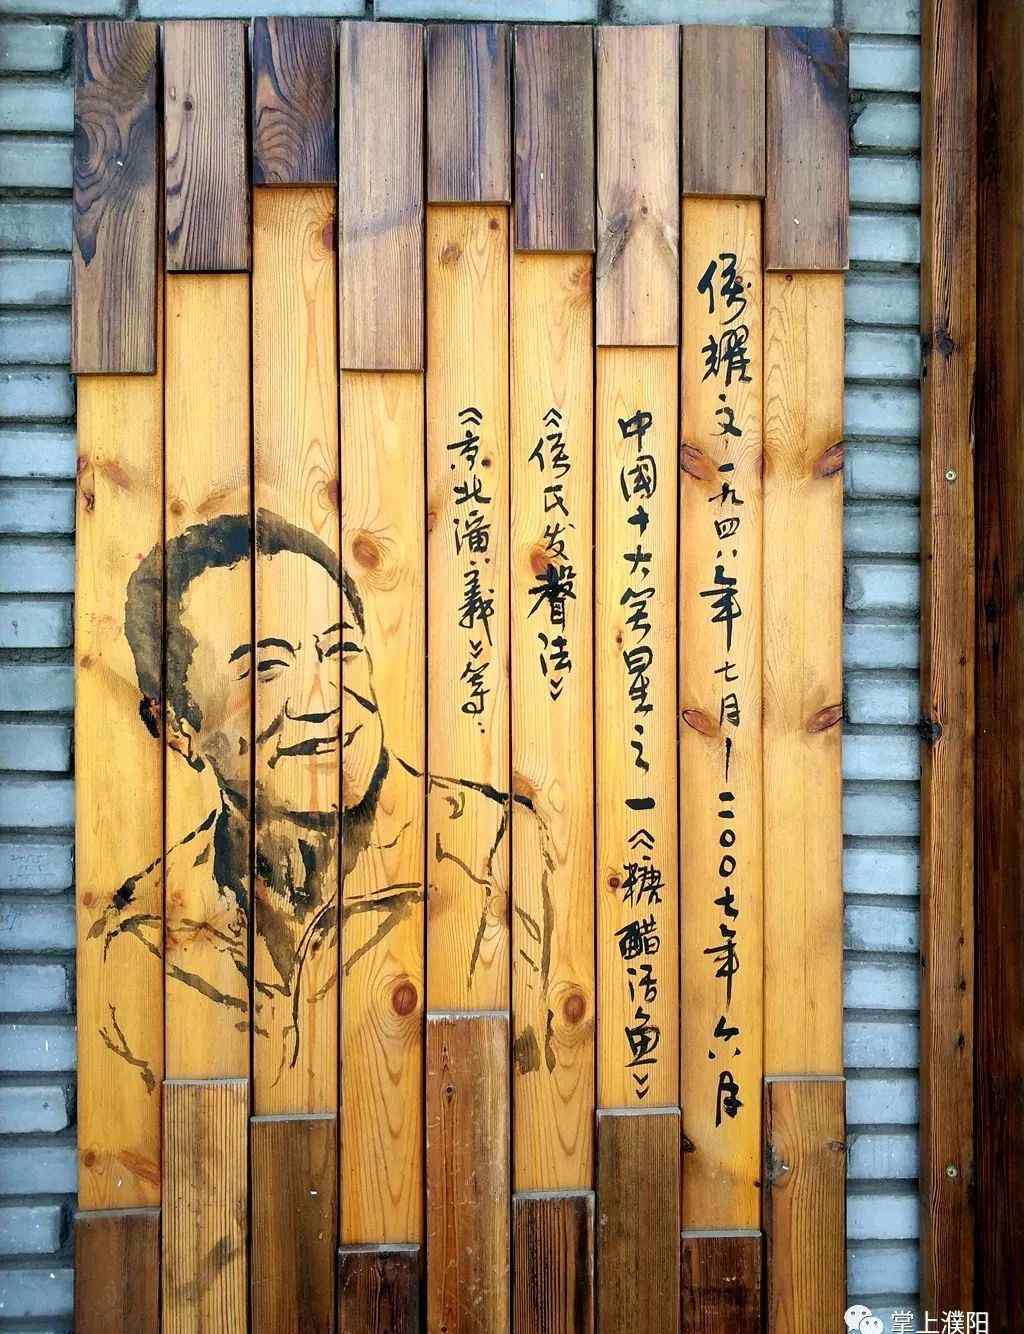 侯耀文 一九四八年七月－二〇〇七年六月
中國十大笑星之一《糖醋活鱼》
《侯氏发聲法》
《京北演义》等:
掌上濮阳